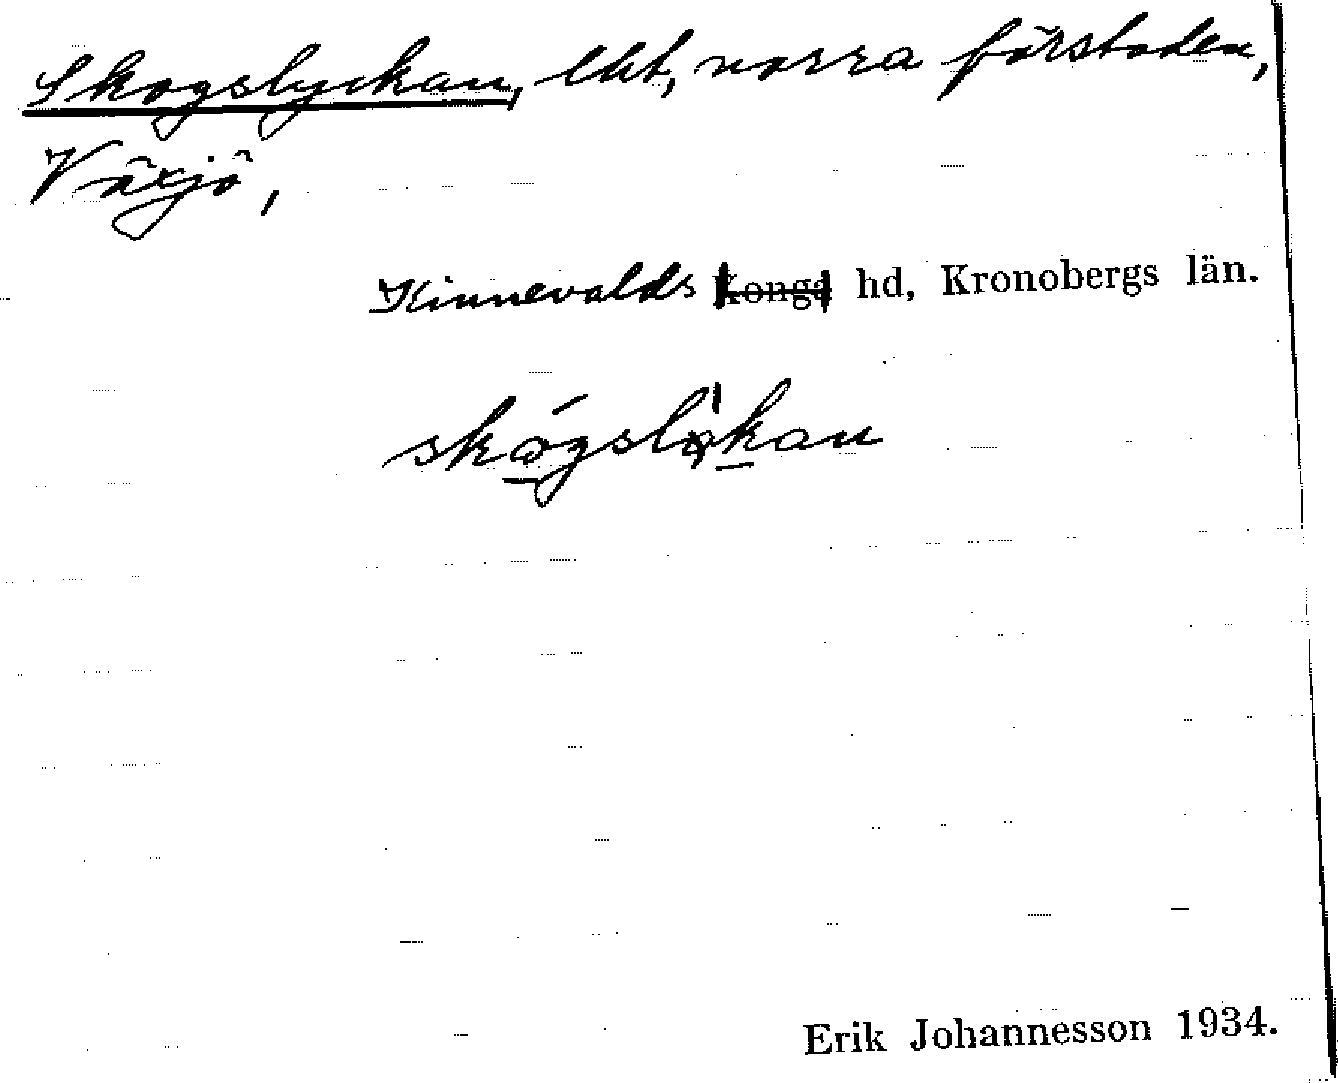 Skogslyckan, lht, norra förstaden,
Växjö,
Kinnevalds Konga hd, Kronobergs län.
skógslø̀kan
Erik Johannesson 1934.